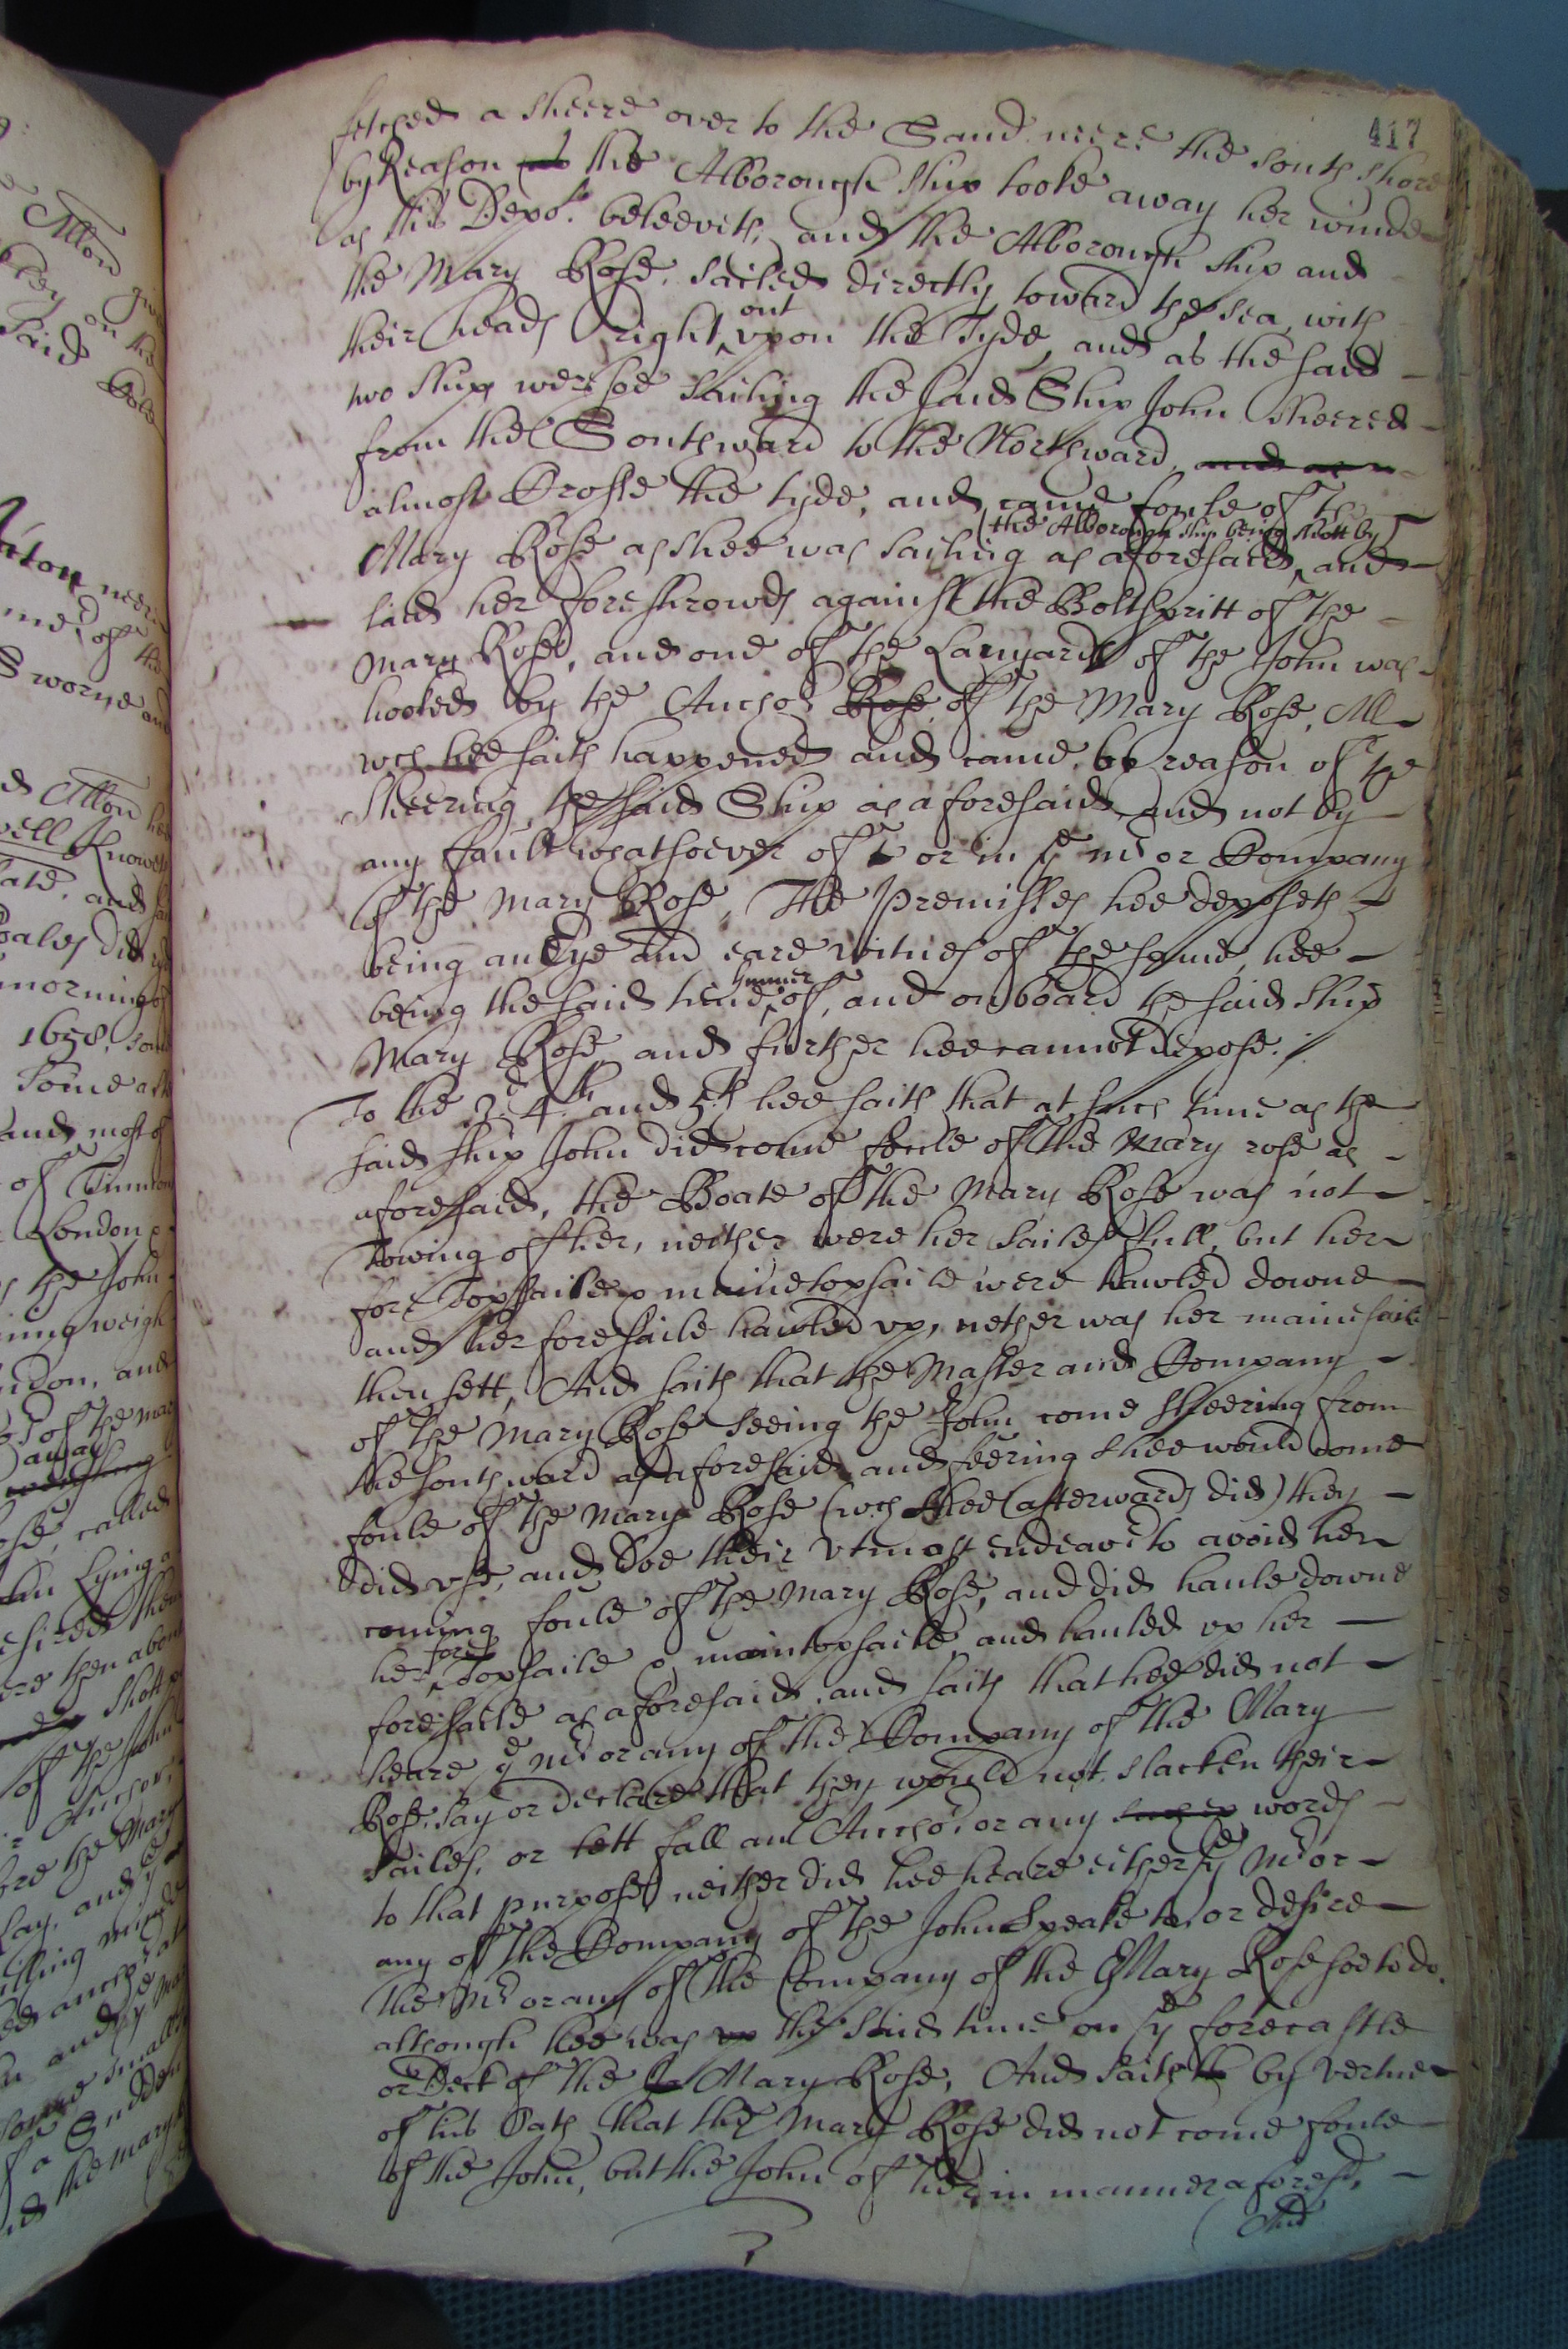 417
fetched a sheere over to the Sand neere the South shore
by Reason the Alborough ship tooke away her winde
as this Depot beleeveth, and the Alborough ship and
the Mary Rose sailed directly toward the sea with
their heads right out upon the Tyde, and as the said
two ships were soe sailing the said Ship John sheered
from the Southward to the Northward
almost Crosse the tyde, and came foule of the
(the Alborough ship being shott by)
Mary Rose as shee was sailing as aforesaid, and
laid her foreshrowds against the Boltspritt of the
Mary Rose, and one of the Lannyards of the John was
hooked by the Anchor Rose of the Mary Rose, All
wch hee saith happened and came by reason of the
sheering the said Ship as aforesaid and not by
any fault whatsoever of or in ye mr or Company
of the Mary Rose, The Premisses hee deposeth
being an Eye and eare witnes of the same, hee
being the said time of, and on board the said ship
Mary Rose, and further hee cannot depose./
To the 3d 4th and 5th hee saith that at such time as the
said ship John did come foule of the Mary rose as
aforesaid, the Boate of the Mary Rose was not
Towing of her, neither were her sailes full, but her
fore Topsaile & mainetopsaile were hawled downe
and her foresaile hawled up, nether was her mainesaile
then sett, And saith that the Master and Company
of the Mary Rose seeing the John come sheering from
the southward as aforesaid and feering shee would come
foule of the Mary Rose (wch shee afterwards did) they
did use, and doe their utmost endeavr to avoid her
coming foule of the Mary Rose, and did haule downe
her fore Topsaile & maintopsaile and hauled up her
foresaile as aforesaid, and saith that hee did not
heare ye mr or any of the Company of the Mary
Rose, say or declare that they would not slacken their
sailes, or lett fall an Anchor, or any words
to that purpose, neither did hee heare either ye Mr or
any of the Company of the John speake to, or desire
the Mr or any of the Company of the Mary Rose soe to do,
although hee was the said time on ye forecastle
or Deck of the Mary Rose, And saith by vertue
of his Oath that the Mary Rose did not come foule
of the John, but the John of her, in manner aforesd,
And